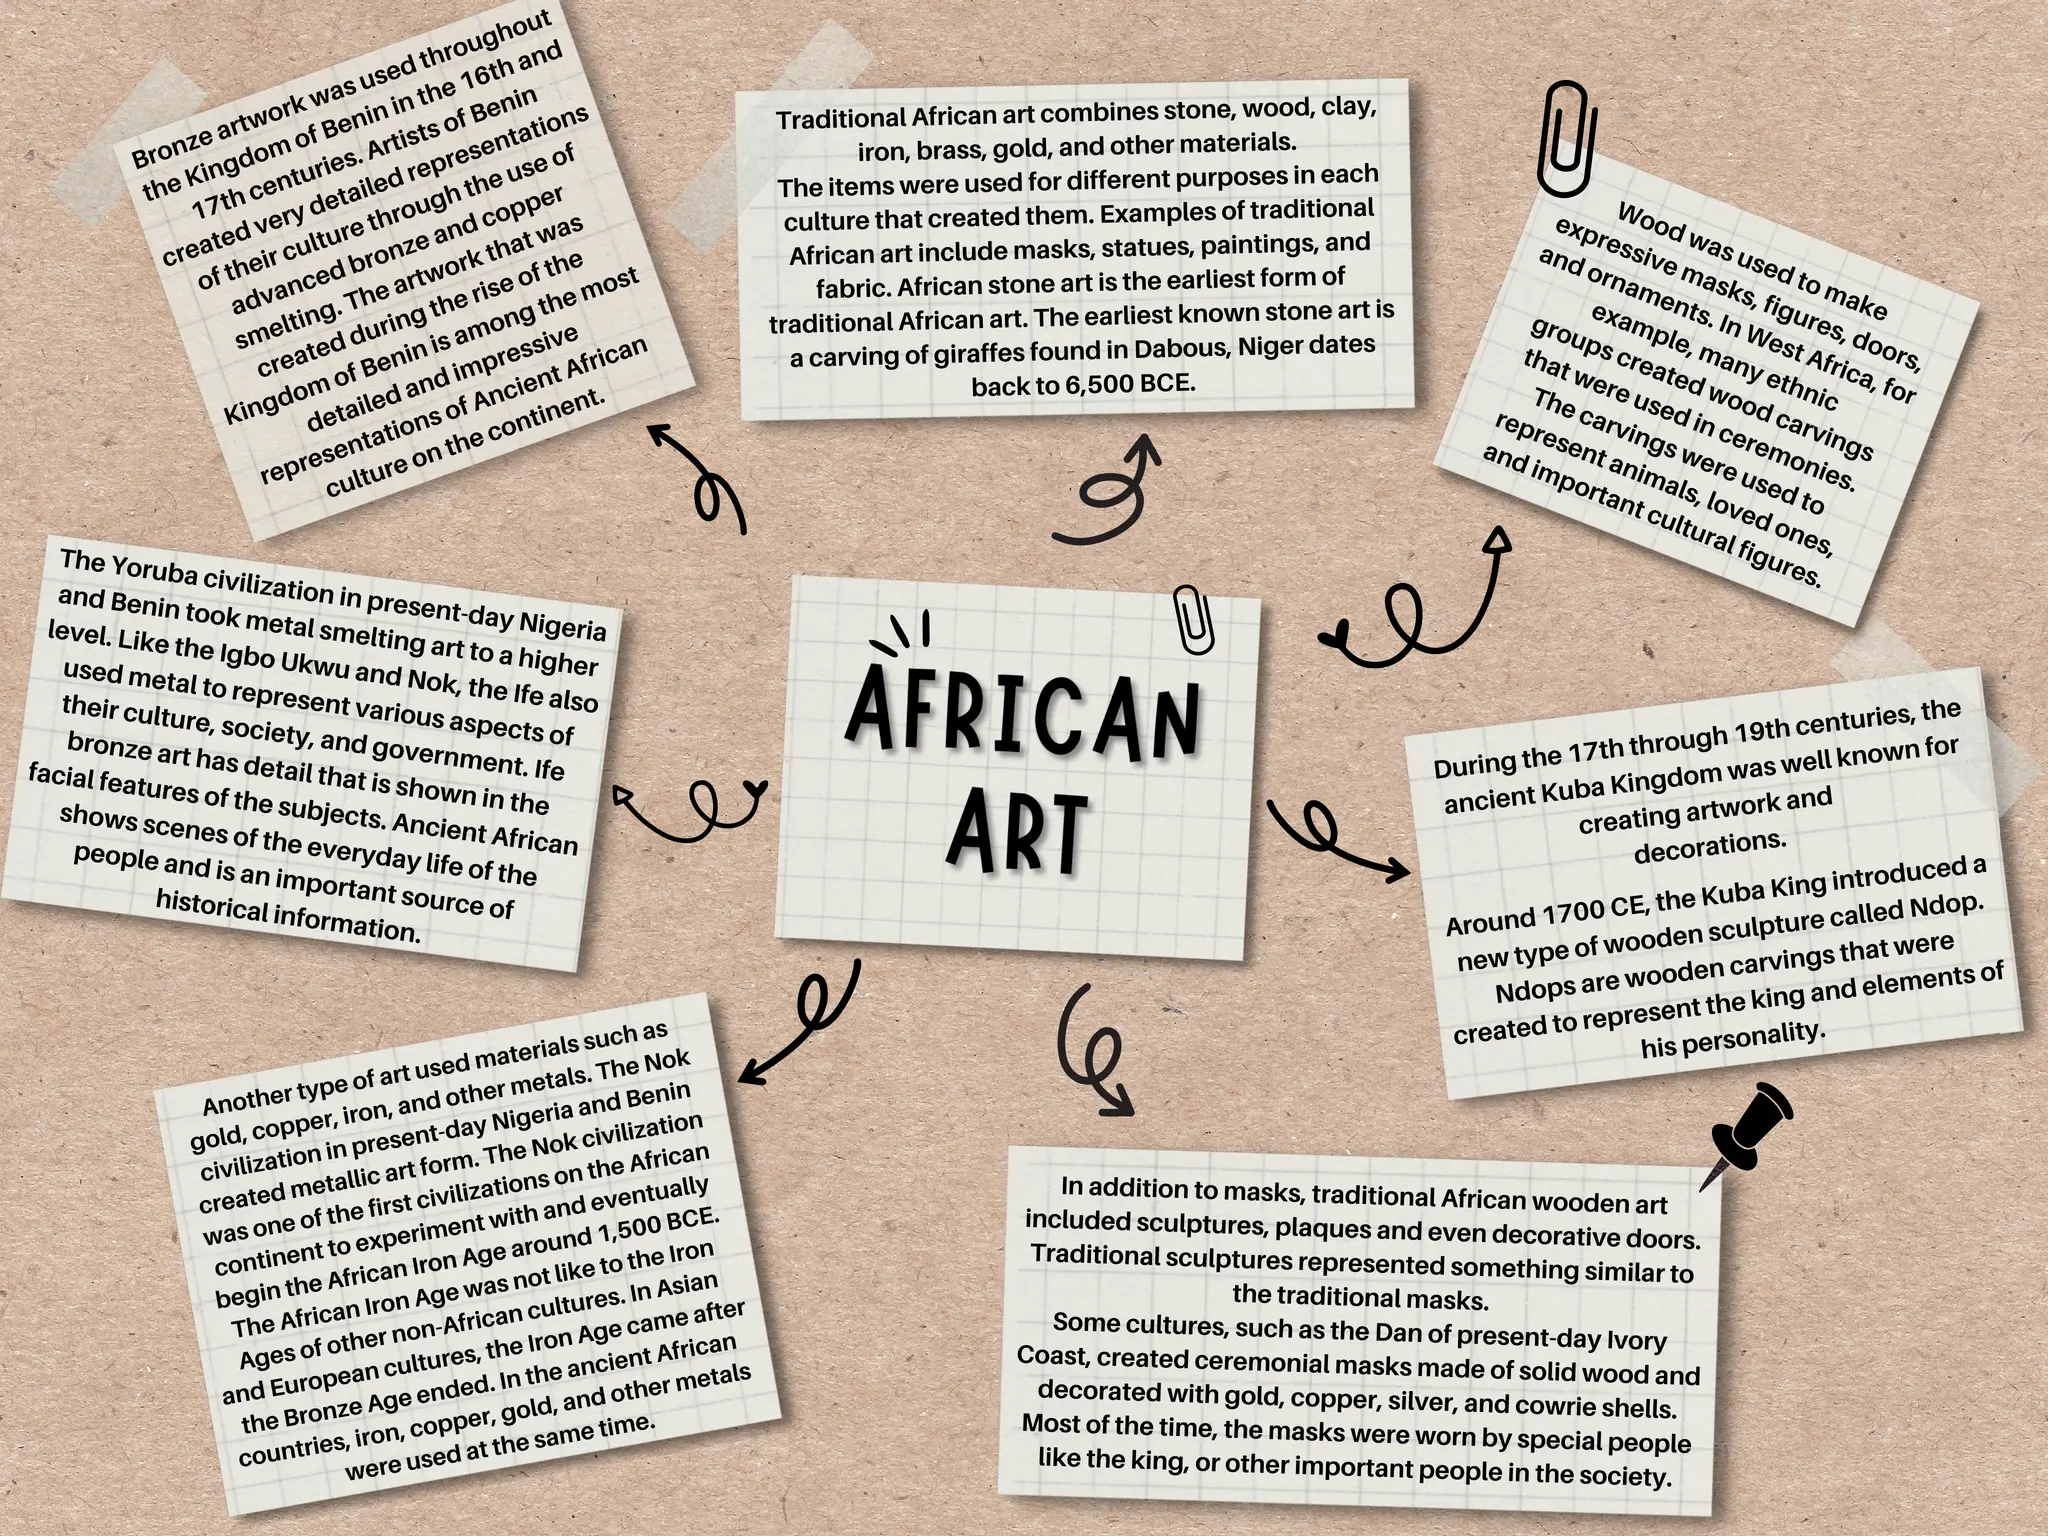 Bronze artwork was used throughout
the Kingdom of Benin in the 16th and
17th centuries. Artists of Benin
created very detailed representations
of their culture through the use of
advanced bronze and copper
smelting. The artwork that was
created during the rise of the
Kingdom of Benin is among the most
detailed and impressive
representations of Ancient African
culture on the continent.
Traditional African art combines stone, wood, clay,
iron, brass, gold, and other materials.
The items were used for different purposes in each
culture that created them. Examples of traditional
African art include masks, statues, paintings, and
fabric. African stone art is the earliest form of
traditional African art. The earliest known stone art is
a carving of giraffes found in Dabous, Niger dates
back to 6,500 BCE.
Wood was used to make
expressive masks, figures, doors,
and ornaments. In West Africa, for
example, many ethnic
groups created wood carvings
that were used in ceremonies.
The carvings were used to
represent animals, loved ones,
and important cultural figures.
The Yoruba civilization in present-day Nigeria
and Benin took metal smelting art to a higher
level. Like the Igbo Ukwu and Nok, the Ife also
used metal to represent various aspects of
their culture, society, and government. Ife
bronze art has detail that is shown in the
facial features of the subjects. Ancient African
shows scenes of the everyday life of the
people and is an important source of
historical information.
AFRICAN
ART
During the 17th through 19th centuries, the
ancient Kuba Kingdom was well known for
creating artwork and
decorations.
Around 1700 CE, the Kuba King introduced a
new type of wooden sculpture called Ndop.
Ndops are wooden carvings that were
created to represent the king and elements of
his personality.
Another type of art used materials such as
gold, copper, iron, and other metals. The Nok
civilization in present-day Nigeria and Benin
created metallic art form. The Nok civilization
was one of the first civilizations on the African
continent to experiment with and eventually
begin the African Iron Age around 1,500 BCE.
The African Iron Age was not like to the Iron
Ages of other non-African cultures. In Asian
and European cultures, the Iron Age came after
the Bronze Age ended. In the ancient African
countries, iron, copper, gold, and other metals
were used at the same time.
In addition to masks, traditional African wooden art
included sculptures, plaques and even decorative doors.
Traditional sculptures represented something similar to
the traditional masks.
Some cultures, such as the Dan of present-day Ivory
Coast, created ceremonial masks made of solid wood and
decorated with gold, copper, silver, and cowrie shells.
Most of the time, the masks were worn by special people
like the king, or other important people in the society.